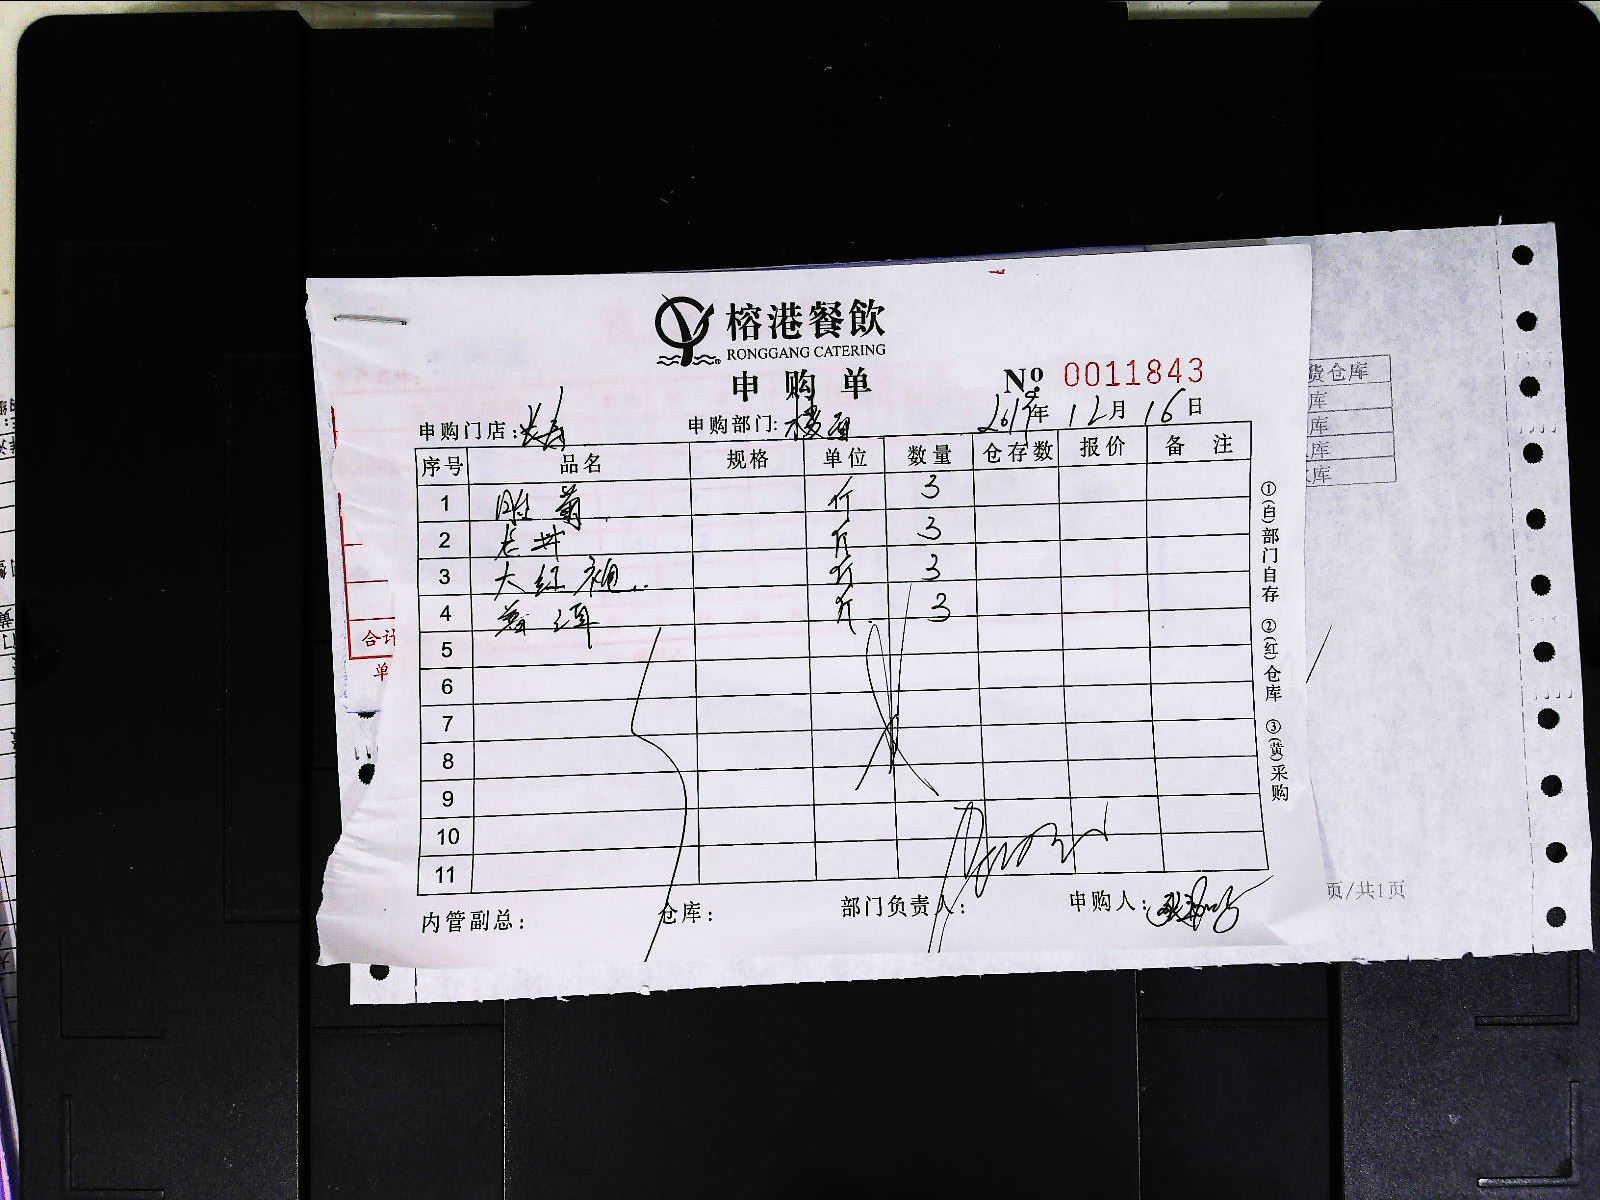 榕港餐飲
RONGGANG CATERING
申购单
№ 0011843
申购门店: 长寿 申购部门: 楼面 2019年12月16日
序号 品名 规格 单位 数量 仓存数 报价 备注
1 斤 3
2 龙井 斤 3
3 大红袍 斤 3
4 普洱 斤 3
5
6
7
8
9
10
11
内管副总: 仓库: 部门负责人: 申购人:
①(白)部门自存 ②(红)仓库 ③(黄)采购
合计
单
货仓库
库
库
库
库
页/共1页